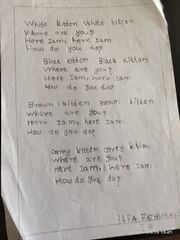 White kitten White kitten
Where are you?
Here Iam, here Iam
How do you dop
Blue kitten Black kitten
Where are you?
Here Iam, here Iam
How do you dop
Brown kitten Brown kitten
Where are you?
Here Iam, here Iam
How do you dop
Grey kitten Grey kitten
Where are you?
Here Iam, here Iam
How do you dop